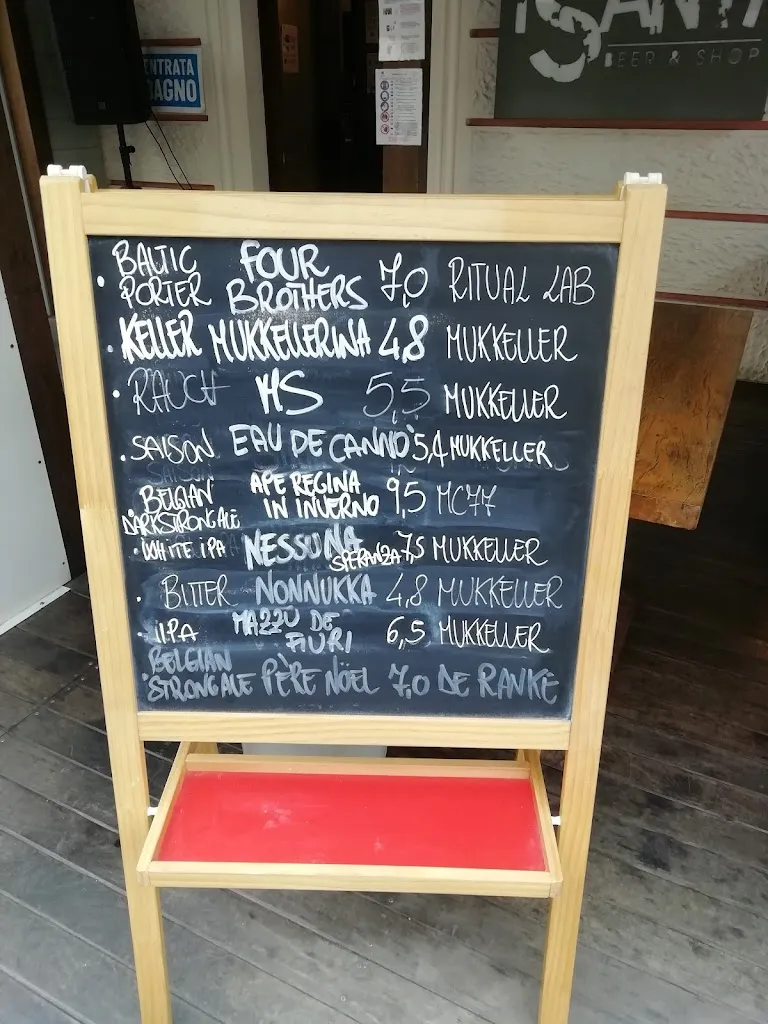 ENTRATA
BAGNO
BEER & SHOP
• BALTIC PORTER FOUR BROTHERS 7,0 RITUAL LAB
• KELLER MUKKELLERINA 4,8 MUKKELLER
• RAUCH MS 5,5 MUKKELLER
• SAISON EAU DE CANNÒ 5,4 MUKKELLER
• BELGIAN DARKSTRONGALE APE REGINA IN INVERNO 9,5 MC77
• WHITE IPA NESSUNA SPERANZA 7,5 MUKKELLER
• BITTER NONNUKKA 4,8 MUKKELLER
• IPA MAZZU DE FIURI 6,5 MUKKELLER
• BELGIAN STRONGALE PÈRE NOËL 7,0 DE RANKE